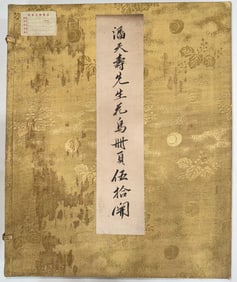 潘天壽先生花鳥冊頁伍拾開